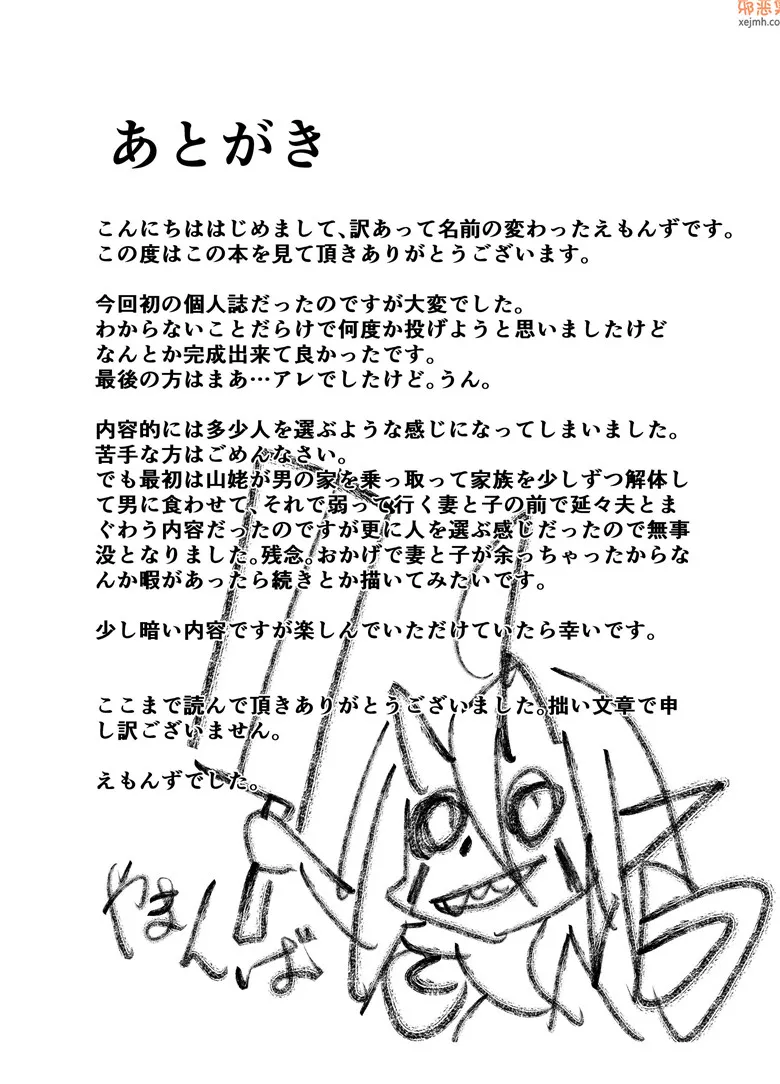 邪恶
xejmh.co
あとがき
こんにちははじめまして、訳あって名前の変わったえもんずです。
この度はこの本を見て頂きありがとうございます。
今回初の個人誌だったのですが大変でした。
わからないことだらけで何度か投げようと思いましたけど
なんとか完成出来て良かったです。
最後の方はまあ…アレでしたけど。うん。
内容的には多少人を選ぶような感じになってしまいました。
苦手な方はごめんなさい。
でも最初は山姥が男の家を乗っ取って家族を少しずつ解体し
て男に食わせて、それで弱って行く妻と子の前で延々夫とま
ぐわう内容だったのですが更に人を選ぶ感じだったので無事
没となりました。残念。おかげで妻と子が余っちゃったからな
んか暇があったら続きとか描いてみたいです。
少し暗い内容ですが楽しんでいただけていたら幸いです。
ここまで読んで頂きありがとうございました。拙い文章で申
し訳ございません。
えもんずでした。
やまんば